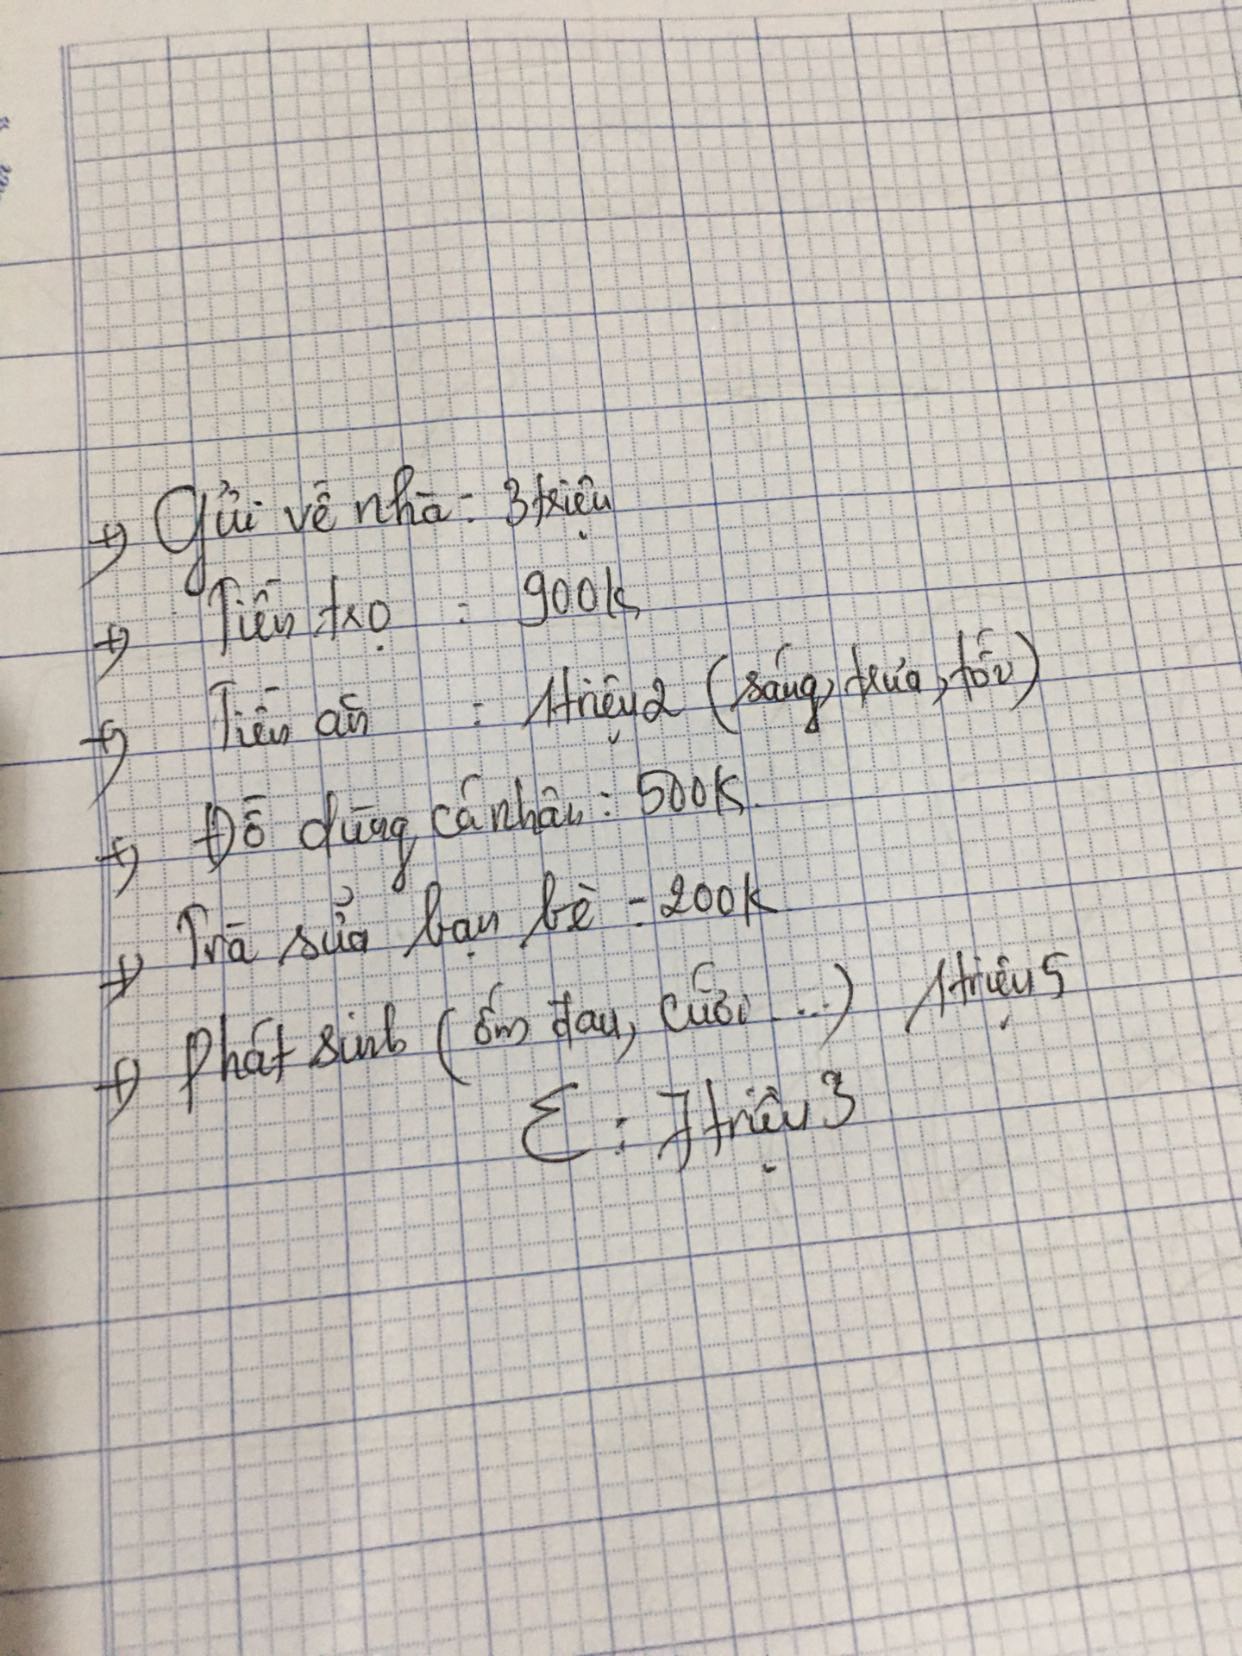 → Gửi về nhà: 3 triệu
→ Tiền trọ : 900k
→ Tiền ăn : 1 triệu 2 (sáng, trưa, tối)
→ Đồ dùng cá nhân: 500K
→ Trà sửa bạn bè = 200k
→ Phát sinh (ốm đau, cưới ...) 1 triệu 5
Σ : 7 triệu 3